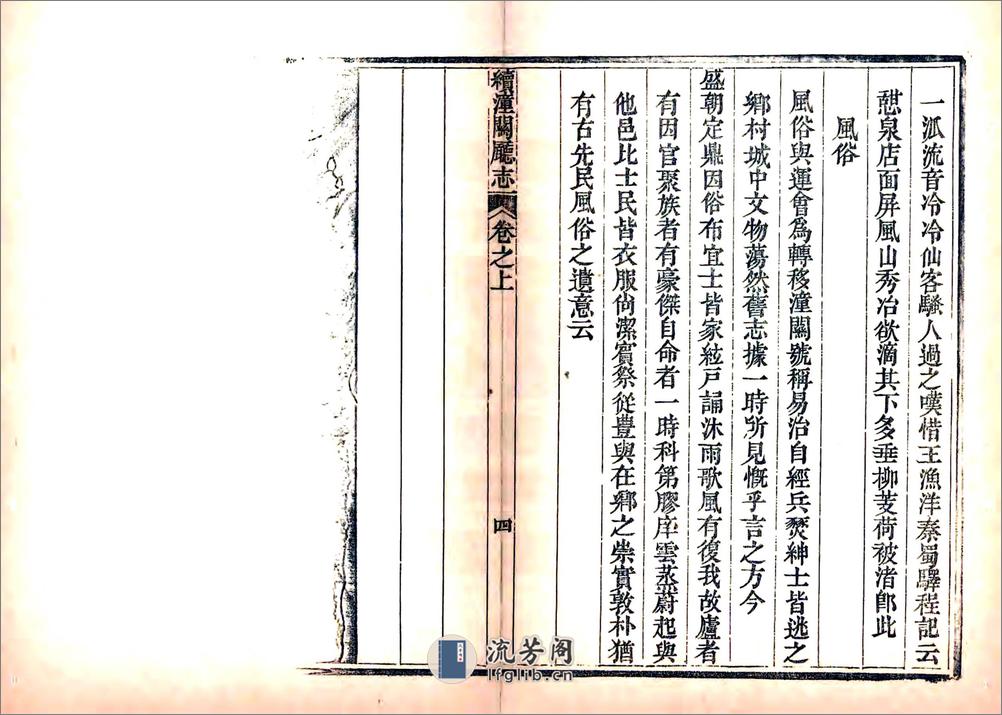 一泒流音冷冷仙客騷人過之嘆惜王漁洋秦蜀驛程記云
憇泉店面屏風山秀冶欲滴其下多垂柳芰荷被渚卽此
風俗
風俗與運會爲轉移潼關號稱易治自經兵燹紳士皆逃之
鄉村城中文物蕩然舊志據一時所見慨乎言之方今
盛朝定鼎因俗布宜士皆家絃戸誦沐雨歌風有復我故廬者
有因官聚族者有豪傑自命者一時科第膠庠雲蒸蔚起與
他邑比士民皆衣服尙潔賓祭從豊與在鄉之崇實敦朴猶
有古先民風俗之遺意云
續潼關廳志
卷之上
四
流芳阁
lfglib.cn